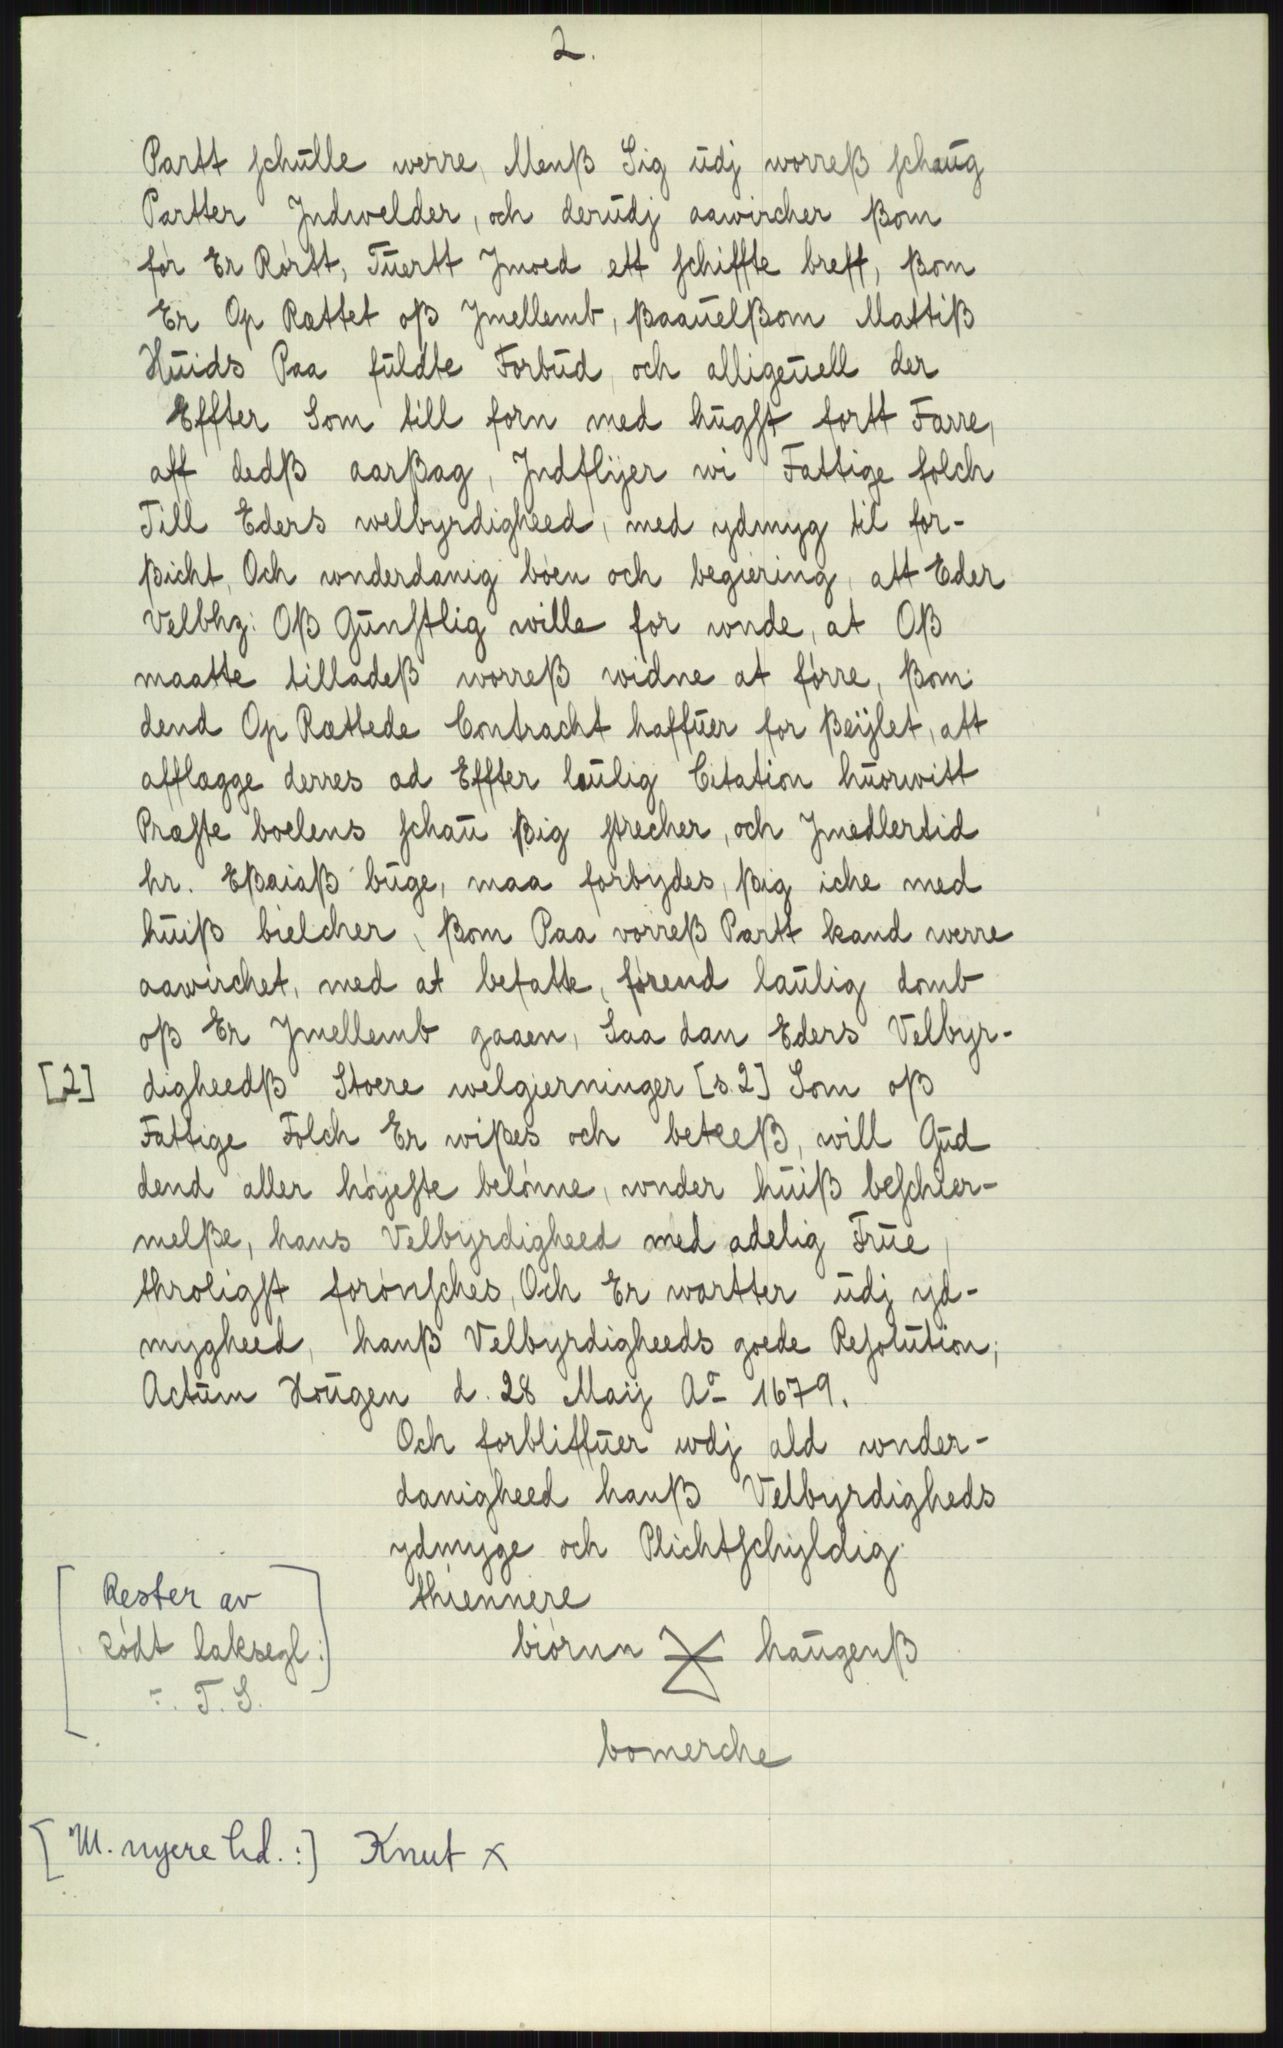 2.
Partt schulle werre, Menß Sig udj worreß schaug
Partter Jndwelder, och derudj aawircher ßom
før Er Rørtt, Tuertt Jmoed ett schiffte breff, ßom
Er Op Rættet oß Jmellemb, ßaauelßom Mattiß
Huids Paa fuldte Forbud, och alligeuell der
Effter Som till forn med hugst fortt Farre,
aff dedß aarßag, Jndflÿer wi Fattige folch
Till Eders welbyrdigheed, med ydmyg til for-
ßicht, Och wnderdanig bøen och begiering, att Eder
Velbhz: Oß Gunstlig wille for wnde, at Oß
maatte tilladeß worreß widne at førre, ßom
dend Op Rættede Contracht haffuer for ßeÿlet, att
afflægge derres æd Effter laulig Citation huorwitt
Præste boelens schau ßig strecher, och Jmedlertid
hr. Eßaiaß buge, maa forbydes, ßig iche med
huiß bielcher, ßom Paa vorreß Partt kand werre
aawirchet, med at befatte, førend laulig domb
oß Er Jmellemb gaaen, Saa dan Eders Velbyr-
[2] digheedß Stoere welgierninger [s.2] Som oß
Fattige Folch Er wißes och beteeß, will Gud
dend aller høyeste belønne, wnder huiß beschier-
melße, hans Velbyrdigheed med adelig Frue,
throligst forønsches, Och Er wartter udj yd-
mygheed, hanß Velbyrdigheeds goede Resolution;
Actum Hougen d. 28 Maij Ao 1679.
Och forbliffuer wdj ald wnder-
danigheed hanß Velbyrdigheds
ydmyge och Plichtschyldig
thiennere
[Rester av
rødt laksegl:]
biørnn haugenß
T. S.
bomerche
[M. nyere hd.:] Knut x